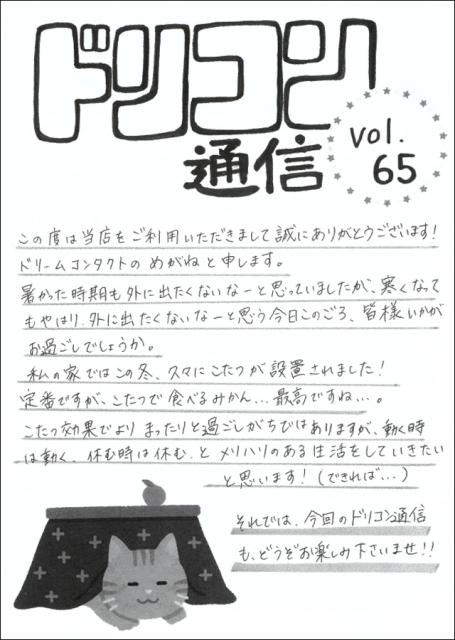 ドリコン
通信
vol.
65
この度は当店をご利用いただきまして誠にありがとうございます!
ドリームコンタクトの めがねと申します。
暑かった時期も外に出たくないなーと思っていましたが、寒くなって
もやはり、外に出たくないなーと思う今日このごろ、皆様いかが
お過ごしでしょうか。
私の家ではこの冬、久々にこたつが設置されました!
定番ですが、こたつで食べるみかん…最高ですね…。
こたつ効果でより まったりと過ごしがちではありますが、動く時
は動く、休む時は休む、と メリハリのある生活をしていきたい
と思います!(できれば…)
それでは、今回のドリコン通信
も、どうぞお楽しみ下さいませ!!